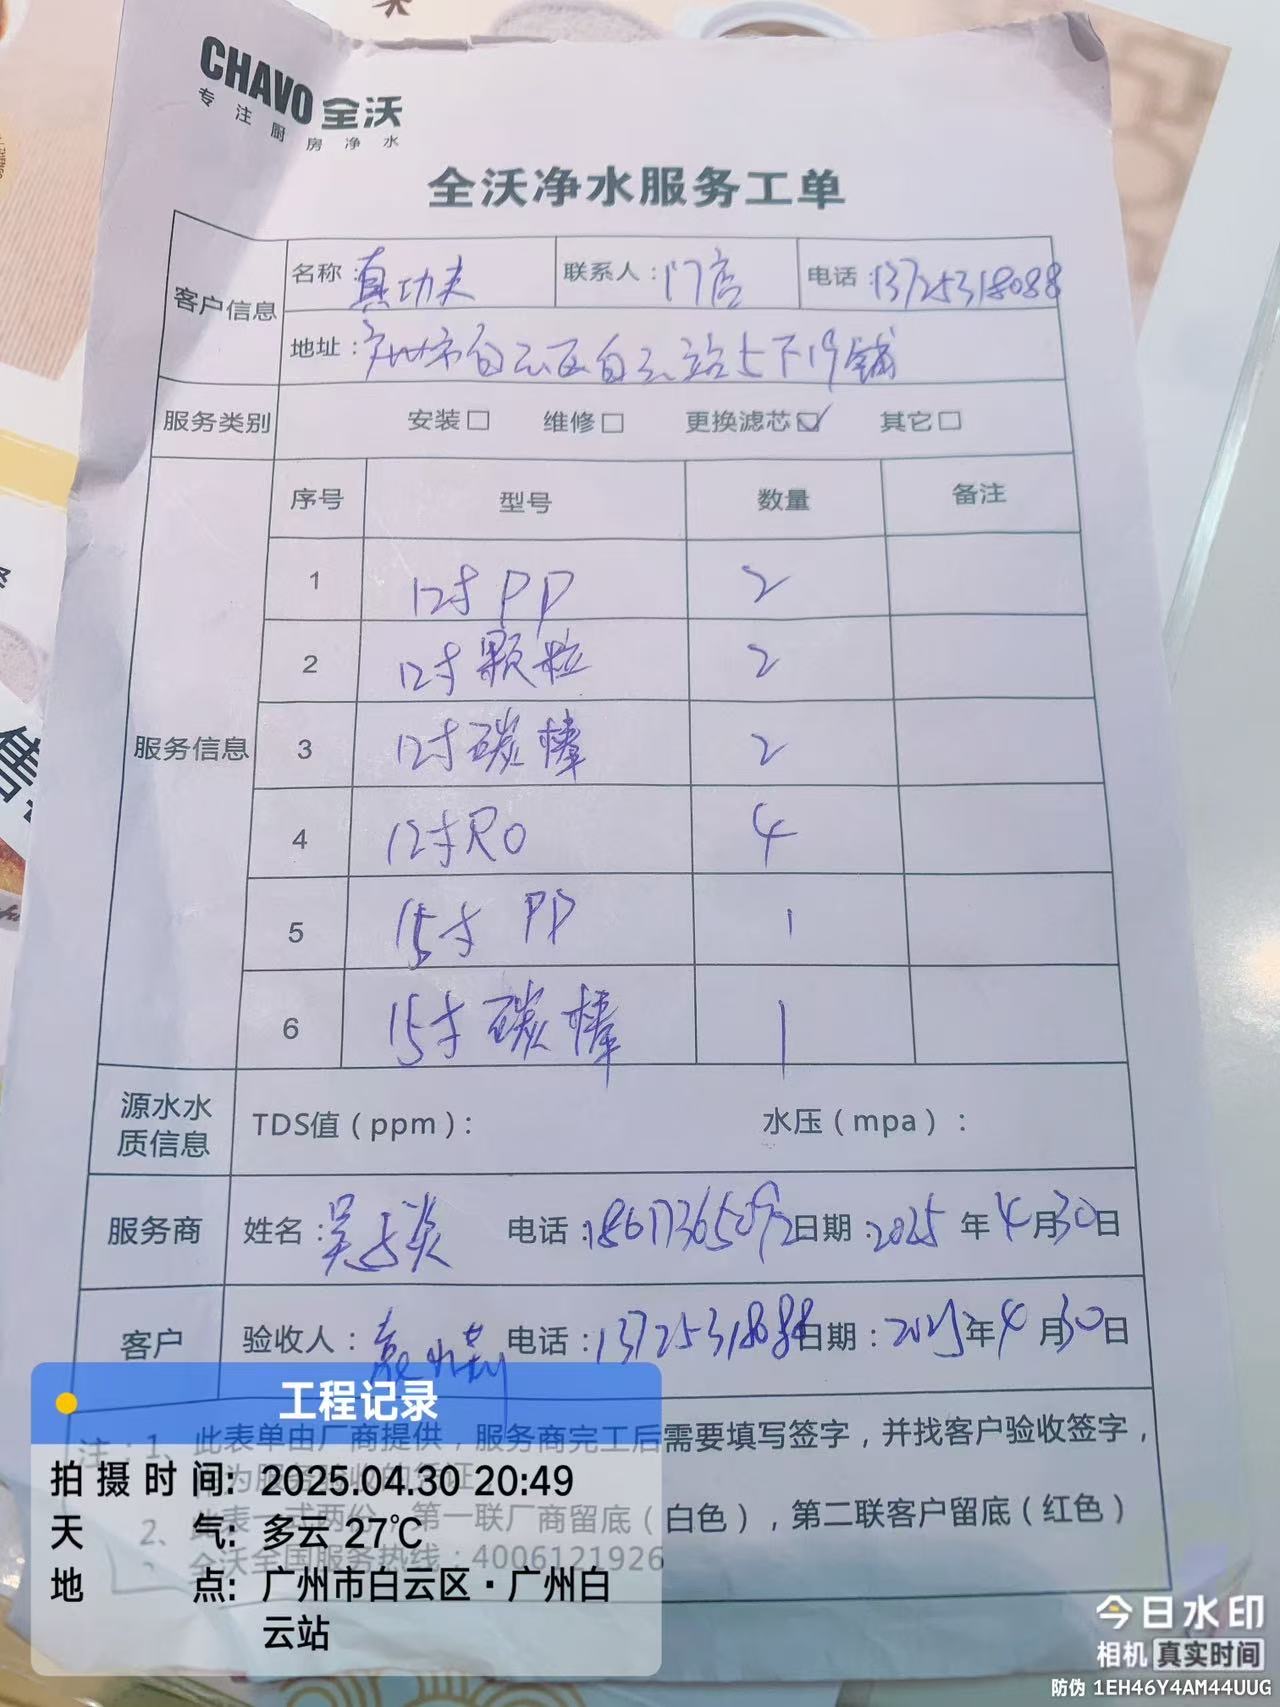 CHAVO 全沃
专注厨房净水
全沃净水服务工单
客户信息 名称：真功夫 联系人：门店 电话：13725318088
地址：广州市白云区白云站上下19铺
服务类别 安装□ 维修□ 更换滤芯☑ 其它□
服务信息 序号 型号 数量 备注
1 12寸PP 2
2 12寸颗粒 2
3 12寸碳棒 2
4 12寸RO 4
5 15寸PP 1
6 15寸碳棒 1
源水水质信息 TDS值（ppm）： 水压（mpa）：
服务商 姓名：吴 炎 电话：18617365092 日期：2025年4月30日
客户 验收人：袁 电话：13725318088 日期：2025年4月30日
注：1、此表单由厂商提供，服务商完工后需要填写签字，并找客户验收签字，
为服务验收的凭证
2、此表一式两份，第一联厂商留底（白色），第二联客户留底（红色）
全沃全国服务热线：4006121926
工程记录
拍摄时间: 2025.04.30 20:49
天气: 多云 27℃
地点: 广州市白云区·广州白
云站
今日水印
相机 真实时间
防伪 1EH46Y4AM44UUG
售